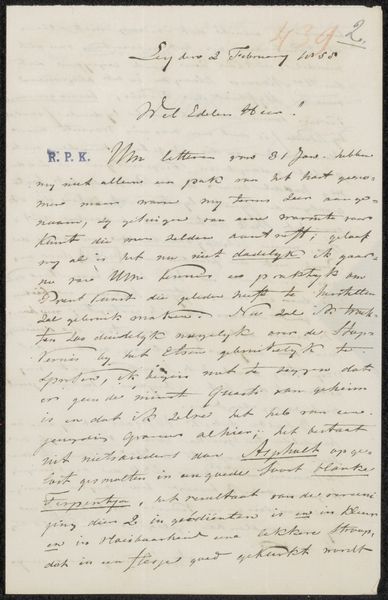 439 2.
Leyden 2 February 1858
Wel Edelen Heer!
R. P. K. Uwe letteren van 31 Jan. hebben
my niet alleen een pak van het hart geno-
men maar waren my tevens zeer aange-
naam, zy getuigen van eene warmte voor
kunst die men zelden aantreft; geloof
my al is het nu niet dadelyk ik gaar-
ne van Uwe kennis en praktyk om
te herstellen
zal gebruik maken. Nu zal ik trach-
ten zoo duidelyk mogelyk over de Stop
Vernis by het Etsen gebruikelyk te
spreken, ik begin met te zeggen dat
er geen de minste questi van geheim
is en dat ik zelve het heb van eene
graveur alhier; het bestaat
uit niets anders dan Asphalt opge
lost gesmolten in een goede soort blanke
Terpentyn, het resultaat van de vereeni
ging dier 2 ingrediënten is en in kleur
en in vloeibaarheid eene dikke Stroop,
dat in een flesje goed gekurkt wordt